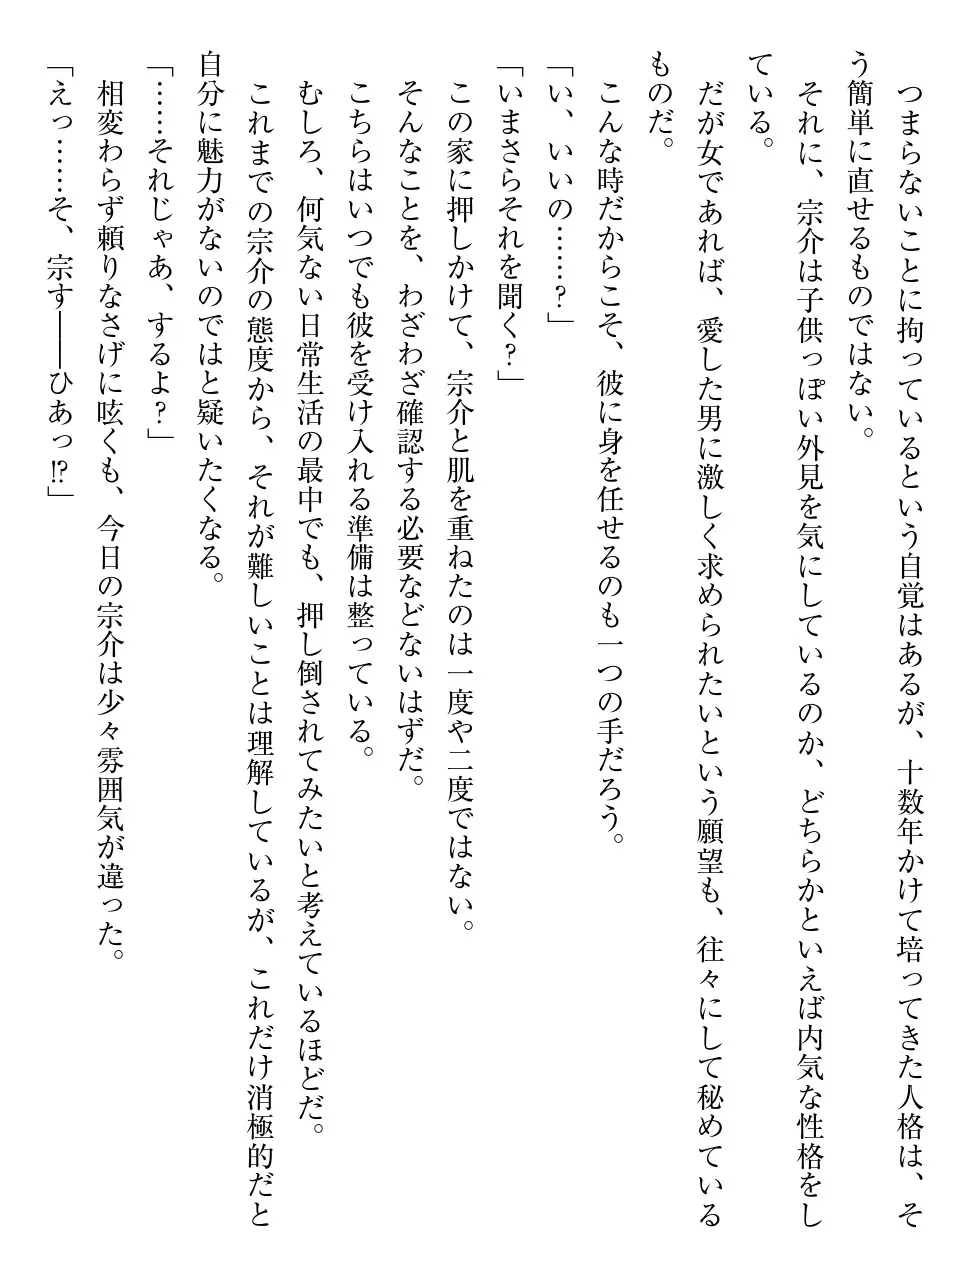 つまらないことに拘っているという自覚はあるが、十数年かけて培ってきた人格は、そ
う簡単に直せるものではない。
それに、宗介は子供っぽい外見を気にしているのか、どちらかといえば内気な性格をし
ている。
だが女であれば、愛した男に激しく求められたいという願望も、往々にして秘めている
ものだ。
こんな時だからこそ、彼に身を任せるのも一つの手だろう。
「い、いいの……?」
「いまさらそれを聞く?」
この家に押しかけて、宗介と肌を重ねたのは一度や二度ではない。
そんなことを、わざわざ確認する必要などないはずだ。
こちらはいつでも彼を受け入れる準備は整っている。
むしろ、何気ない日常生活の最中でも、押し倒されてみたいと考えているほどだ。
これまでの宗介の態度から、それが難しいことは理解しているが、これだけ消極的だと
自分に魅力がないのではと疑いたくなる。
「……それじゃあ、するよ?」
相変わらず頼りなさげに呟くも、今日の宗介は少々雰囲気が違った。
「えっ……そ、宗す――ひあっ!?」